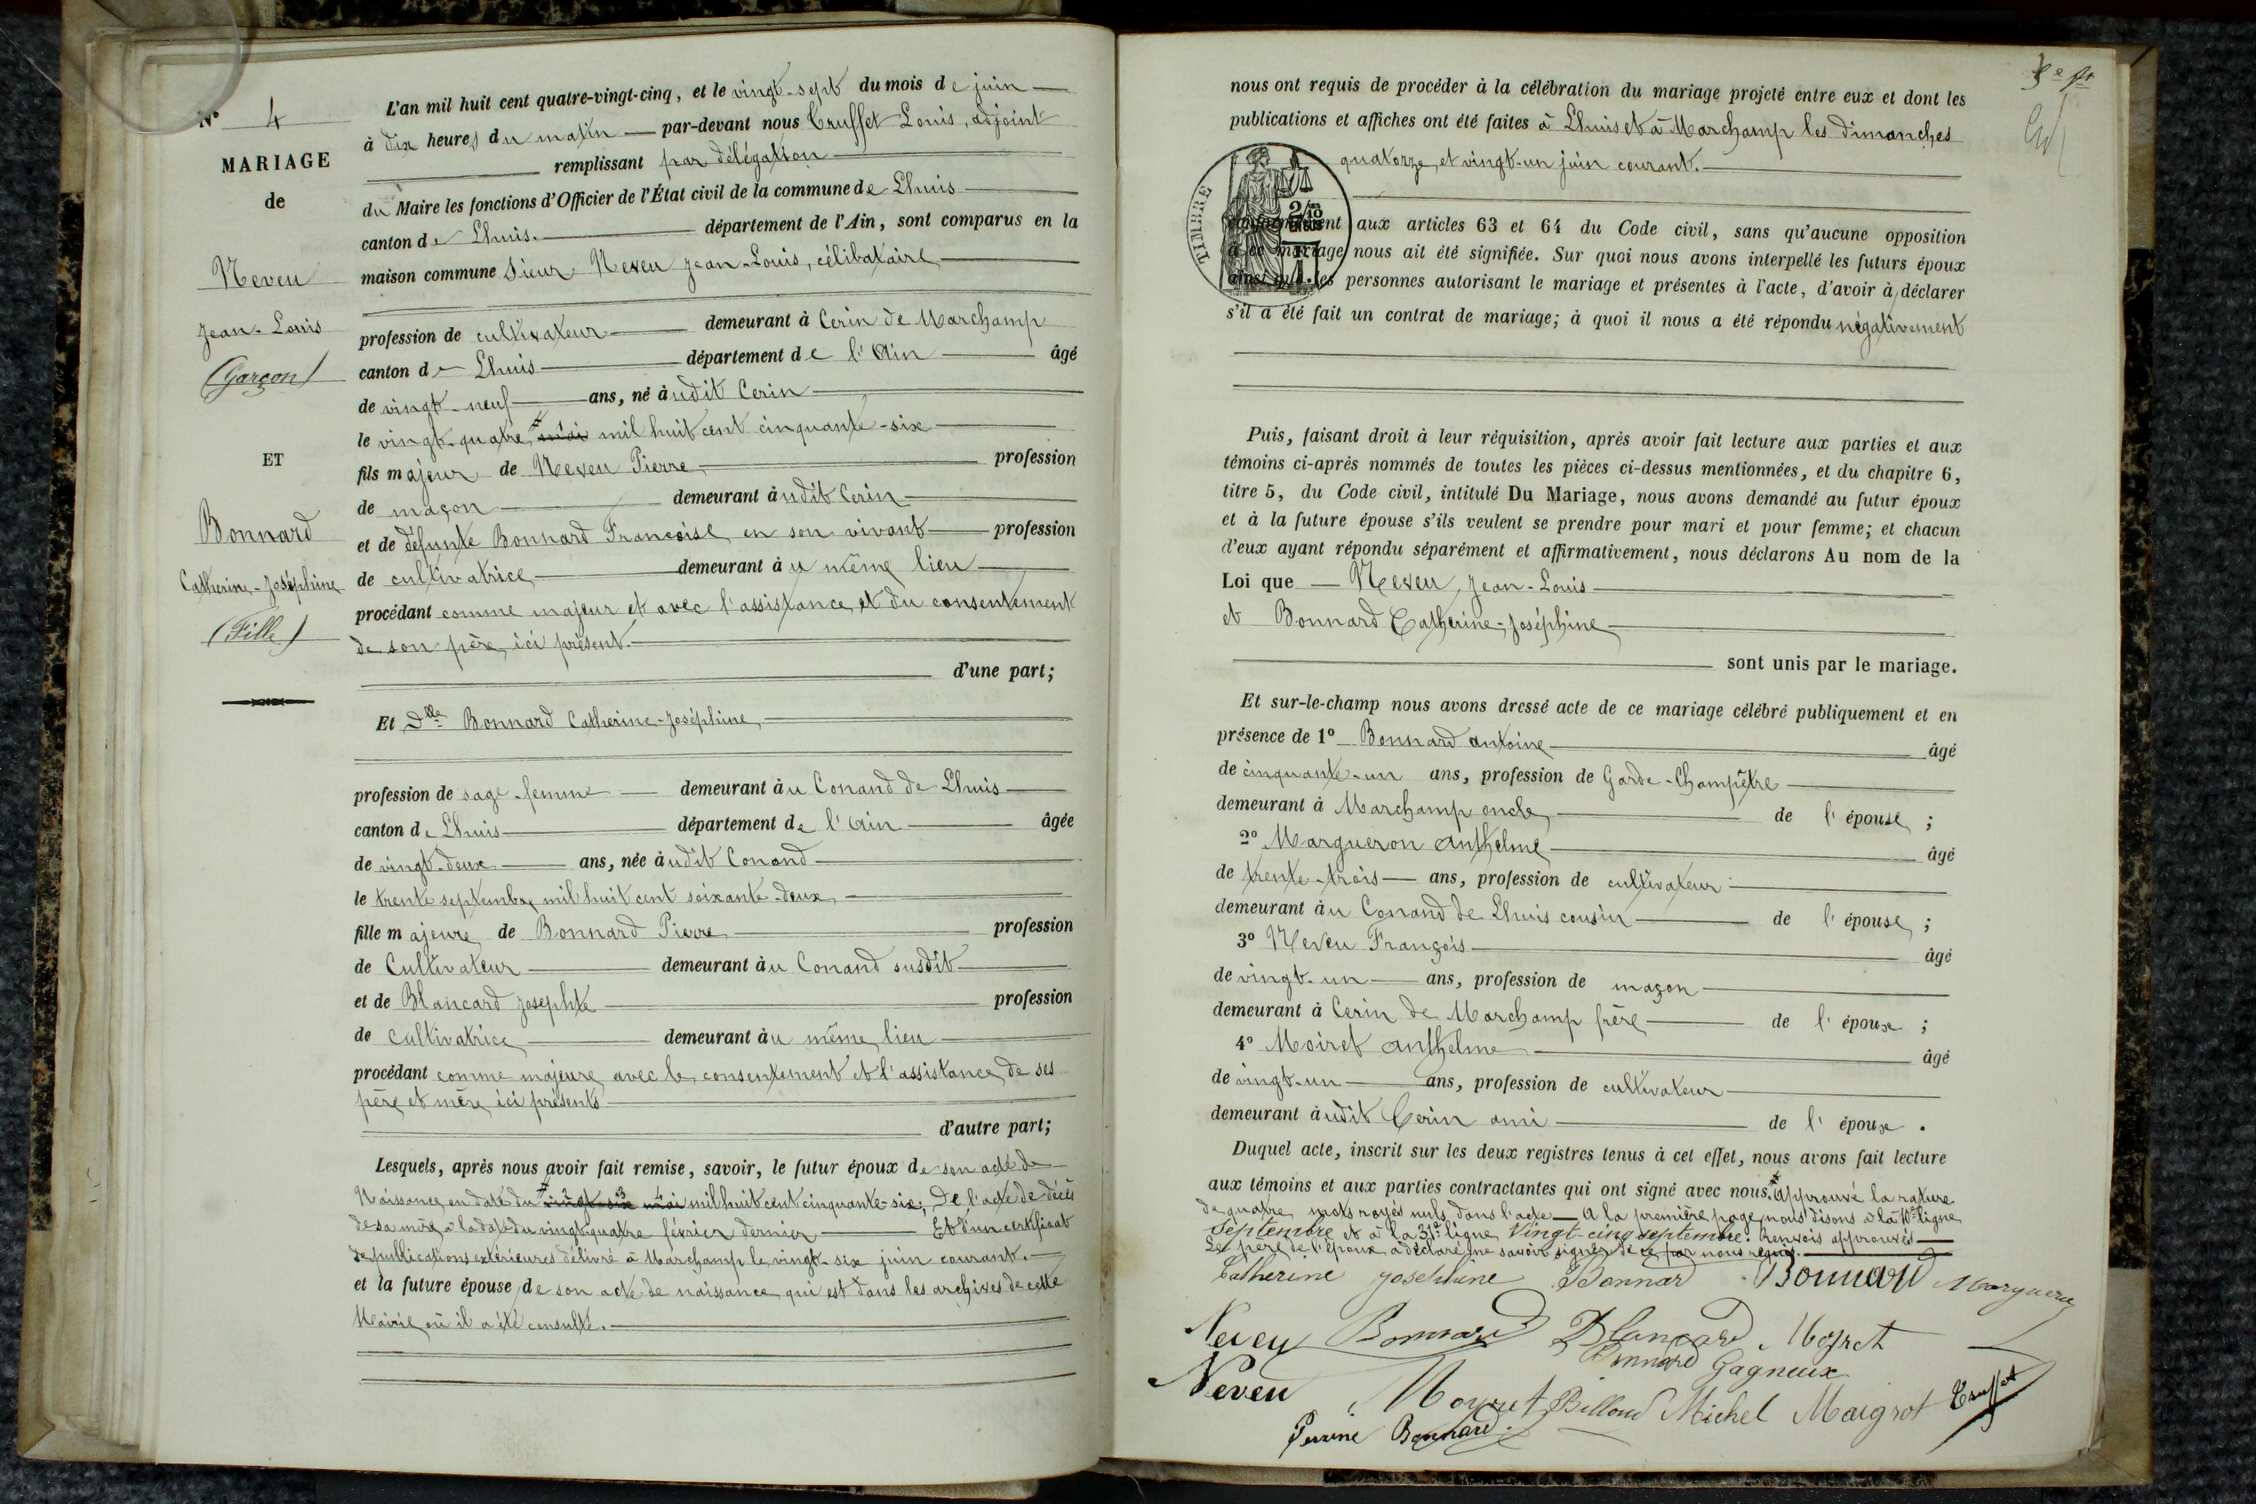 N° 4
MARIAGE
de
Neveu
Jean-Louis
(Garçon)
ET
Bonnard
Catherine-Joséphine
(Fille)
L'an mil huit cent quatre-vingt-cinq, et le vingt-sept du mois de juin
à dix heures du matin par-devant nous Truffet Louis, adjoint
remplissant par délégation
du Maire les fonctions d'Officier de l'État civil de la commune de Lhuis
canton de Lhuis. département de l'Ain, sont comparus en la
maison commune Sieur Neveu Jean-Louis, célibataire
profession de cultivateur demeurant à Cerin de Marchamp
canton de Lhuis département de l'Ain âgé
de vingt-neuf ans, né audit Cerin
le vingt-quatre # mai mil huit cent cinquante-six
fils majeur de Neveu Pierre profession
de maçon demeurant audit Cerin
et de défunte Bonnard Françoise en son vivant profession
de cultivatrice demeurant au même lieu
procédant comme majeur et avec l'assistance et du consentement
de son père ici présent.
d'une part;
Et Dlle Bonnard Catherine-Joséphine
profession de sage-femme demeurant au Conand de Lhuis
canton de Lhuis département de l'Ain âgée
de vingt-deux ans, née audit Conand
le trente septembre mil huit cent soixante-deux
fille majeure de Bonnard Pierre profession
de Cultivateur demeurant au Conand susdit
et de Blancard Josephte profession
de cultivatrice demeurant au même lieu
procédant comme majeure avec le consentement et l'assistance de ses
père et mère ici présents
d'autre part;
Lesquels, après nous avoir fait remise, savoir, le futur époux de son acte de
Naissance en date du # vingt-six mai mil huit cent cinquante-six; De l'acte de décès
de sa mère à la date du vingt-quatre février dernier Et d'un certificat
de publications extérieures délivré à Marchamp le vingt-six juin courant.
et la future épouse de son acte de naissance qui est dans les archives de cette
Mairie où il a été consulté.
nous ont requis de procéder à la célébration du mariage projeté entre eux et dont les
publications et affiches ont été faites à Lhuis et à Marchamp les dimanches
quatorze et vingt-un juin courant.
TIMBRE
conformément aux articles 63 et 64 du Code civil, sans qu'aucune opposition
à ce mariage nous ait été signifiée. Sur quoi nous avons interpellé les futurs époux
ainsi que les personnes autorisant le mariage et présentes à l'acte, d'avoir à déclarer
s'il a été fait un contrat de mariage; à quoi il nous a été répondu négativement
Puis, faisant droit à leur réquisition, après avoir fait lecture aux parties et aux
témoins ci-après nommés de toutes les pièces ci-dessus mentionnées, et du chapitre 6,
titre 5, du Code civil, intitulé Du Mariage, nous avons demandé au futur époux
et à la future épouse s'ils veulent se prendre pour mari et pour femme; et chacun
d'eux ayant répondu séparément et affirmativement, nous déclarons Au nom de la
Loi que Neveu, Jean-Louis
et Bonnard Catherine-Joséphine
sont unis par le mariage.
Et sur-le-champ nous avons dressé acte de ce mariage célébré publiquement et en
présence de 1° Bonnard antoine âgé
de cinquante-un ans, profession de Garde-Champêtre
demeurant à Marchamp oncle de l'épouse;
2° Margueron Anthelme âgé
de trente-trois ans, profession de cultivateur
demeurant au Conand de Lhuis cousin de l'épouse;
3° Neveu François âgé
de vingt-un ans, profession de maçon
demeurant à Cerin de Marchamp frère de l'époux;
4° Moiret Anthelme âgé
de vingt-un ans, profession de cultivateur
demeurant audit Cerin ami de l'époux.
Duquel acte, inscrit sur les deux registres tenus à cet effet, nous avons fait lecture
aux témoins et aux parties contractantes qui ont signé avec nous. approuvé la rature
de quatre mots rayés nuls dans l'acte A la première page nous disons à la 10e ligne
Septembre et à la 31e ligne Vingt-cinq septembre. Renvois approuvés
Le père de l'époux a déclaré ne savoir signer de ce par nous requis.
Catherine Joséphine Bonnard Bonnard Margueron
Neveu Bonnard Blancard Moyret
Bonnard Gagneux
Neveu Moyret Billoud Michel Maigrot Truffet
Perrine Bonnard